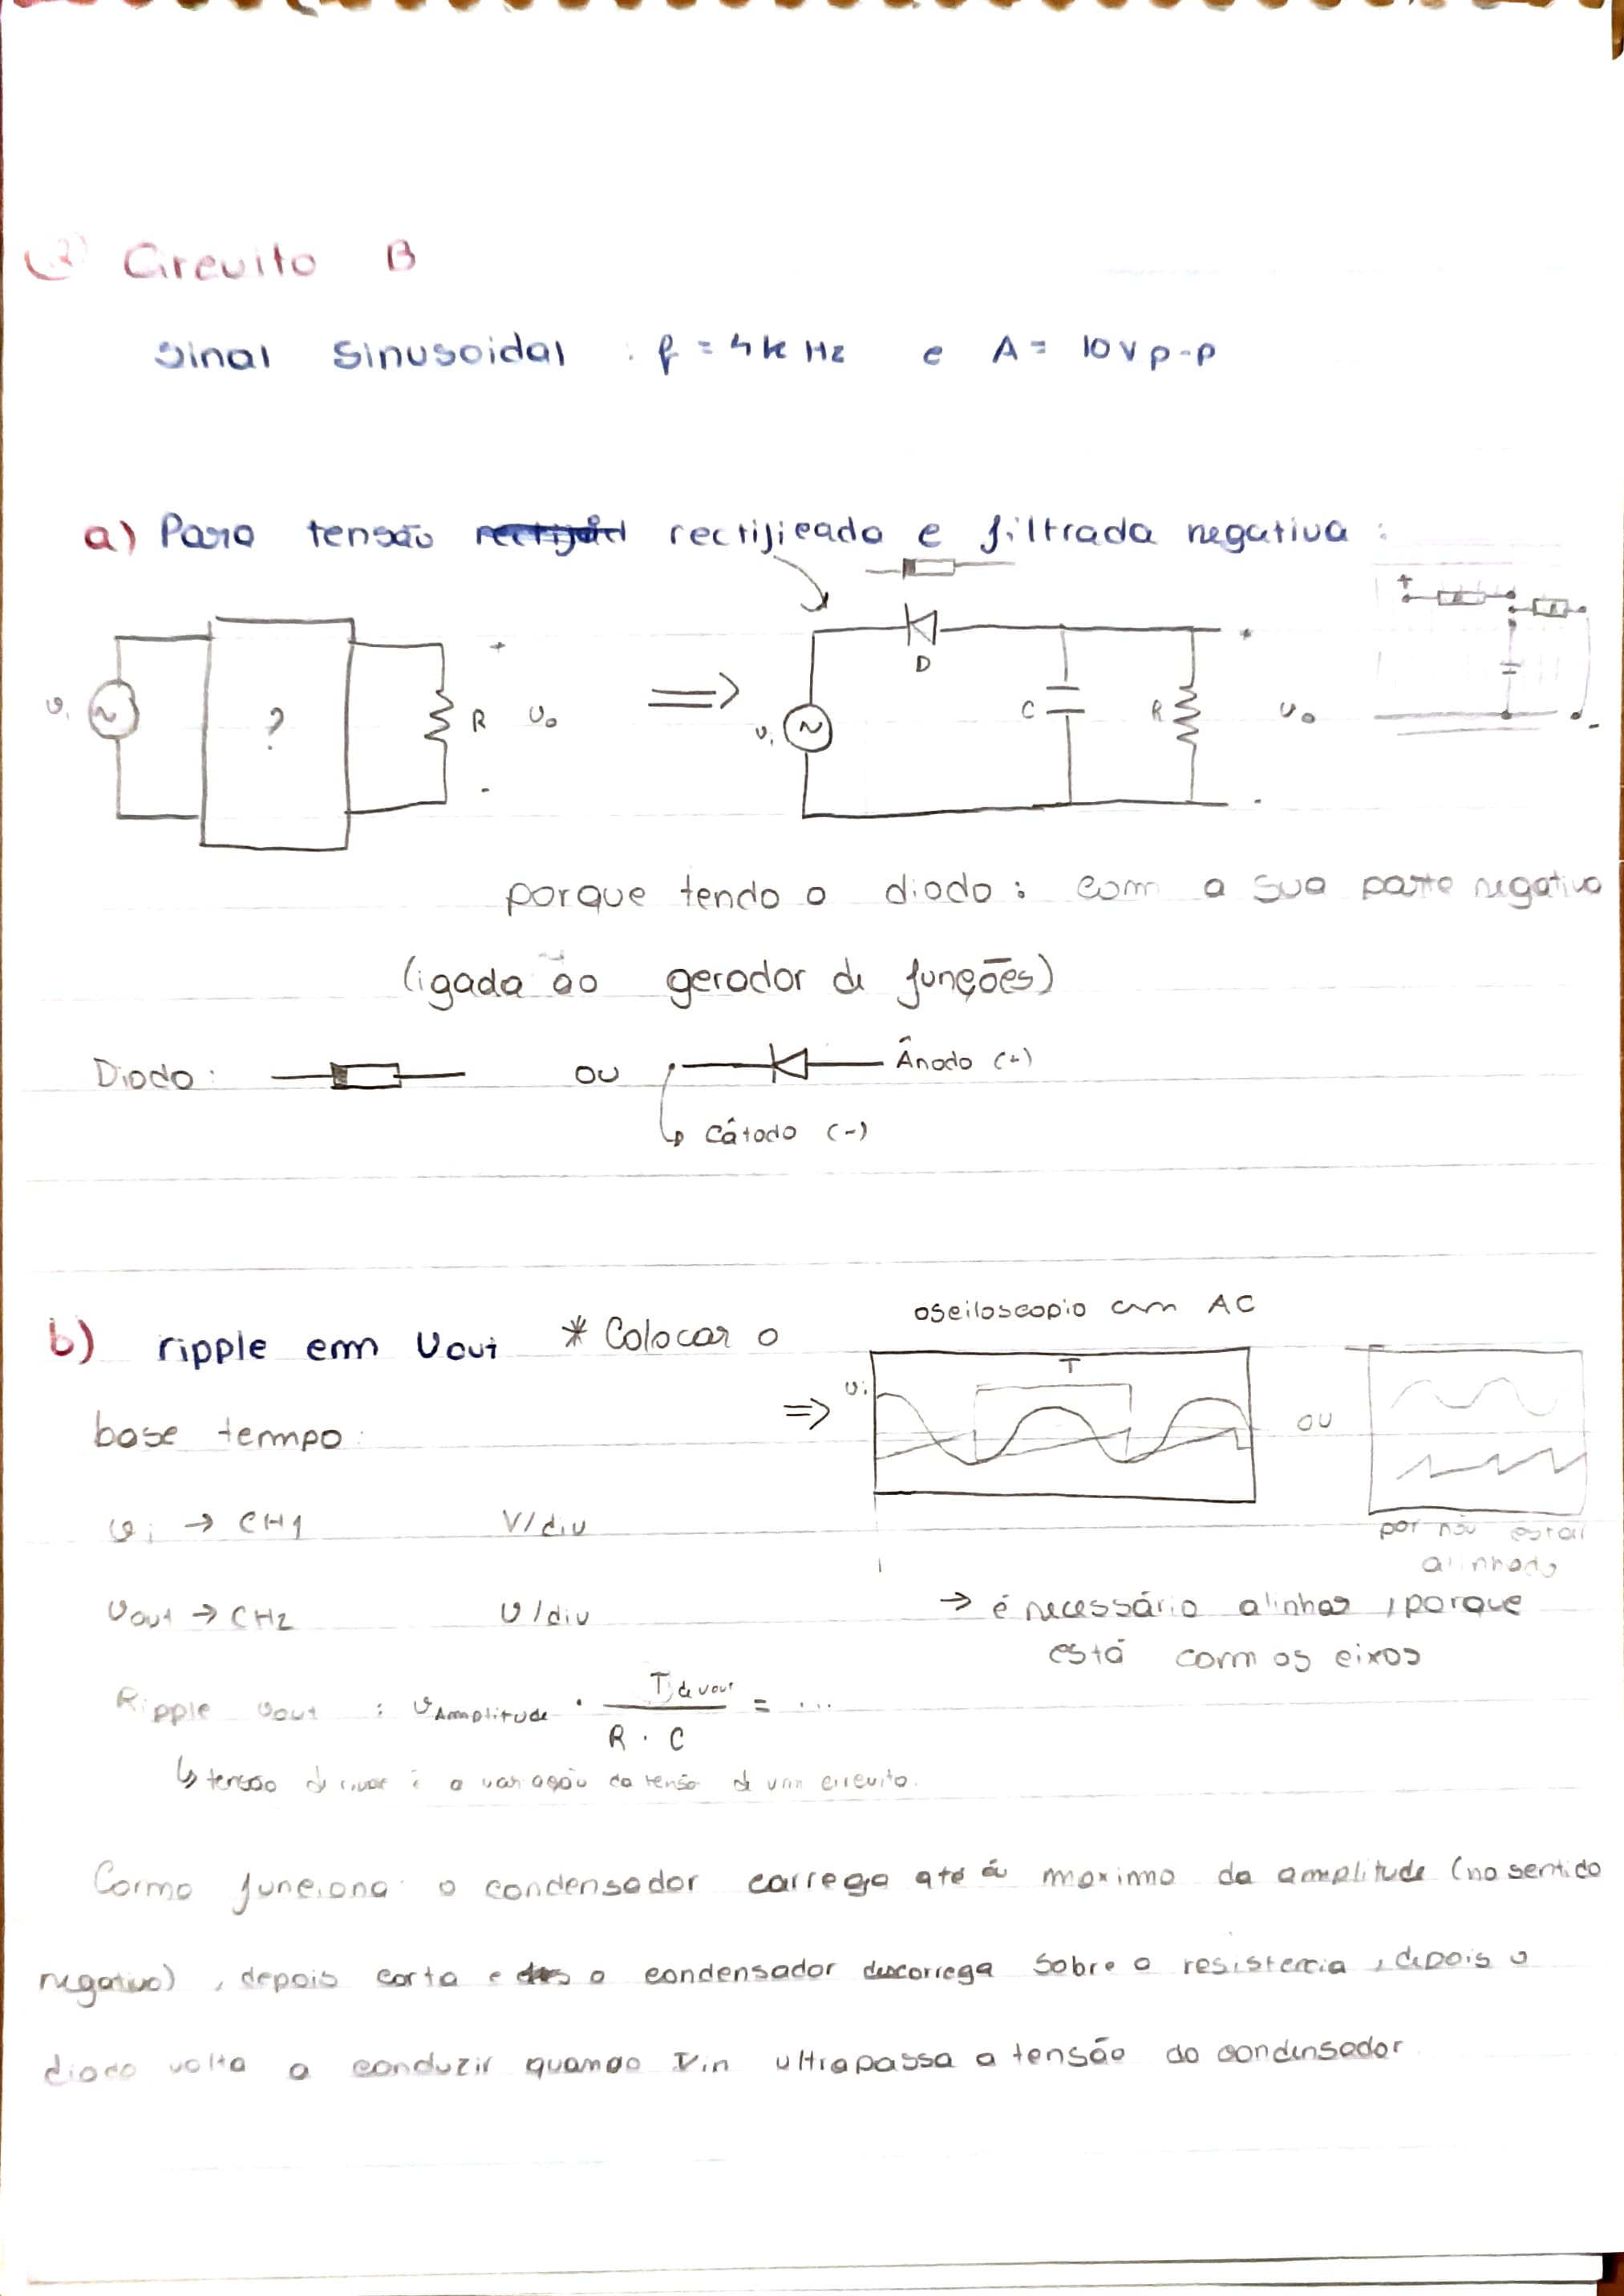 2) Circuito B
Sinal Sinusoidal : f = 4k Hz e A = 10 V p-p
a) Para tensão rectificada e filtrada negativa :
+
-
vi
?
R
vo
+
-
⇒
vi
D
C
R
vo
+
-
+
-
porque tendo o diodo : com a sua parte negativa
(ligada ao gerador de funções)
Diodo : ou Ânodo (+)
↳ Cátodo (-)
b) ripple em Vout * Colocar o osciloscopio em AC
base tempo :
⇒
vi
T
ou
vi → CH1 V/div
por não estar
alinhado
Vout → CH2 V/div
→ é necessário alinhar, porque
está com os eixos
Ripple vout : vAmplitude · T de vout / R · C = ...
↳ tensão de é a variação da tensão de um circuito.
Como funciona o condensador carrega até á maximo da amplitude (no sentido
negativo), depois corta e o condensador descarrega sobre a resistencia, depois o
diodo volta a conduzir quando Vin ultrapassa a tensão do condensador